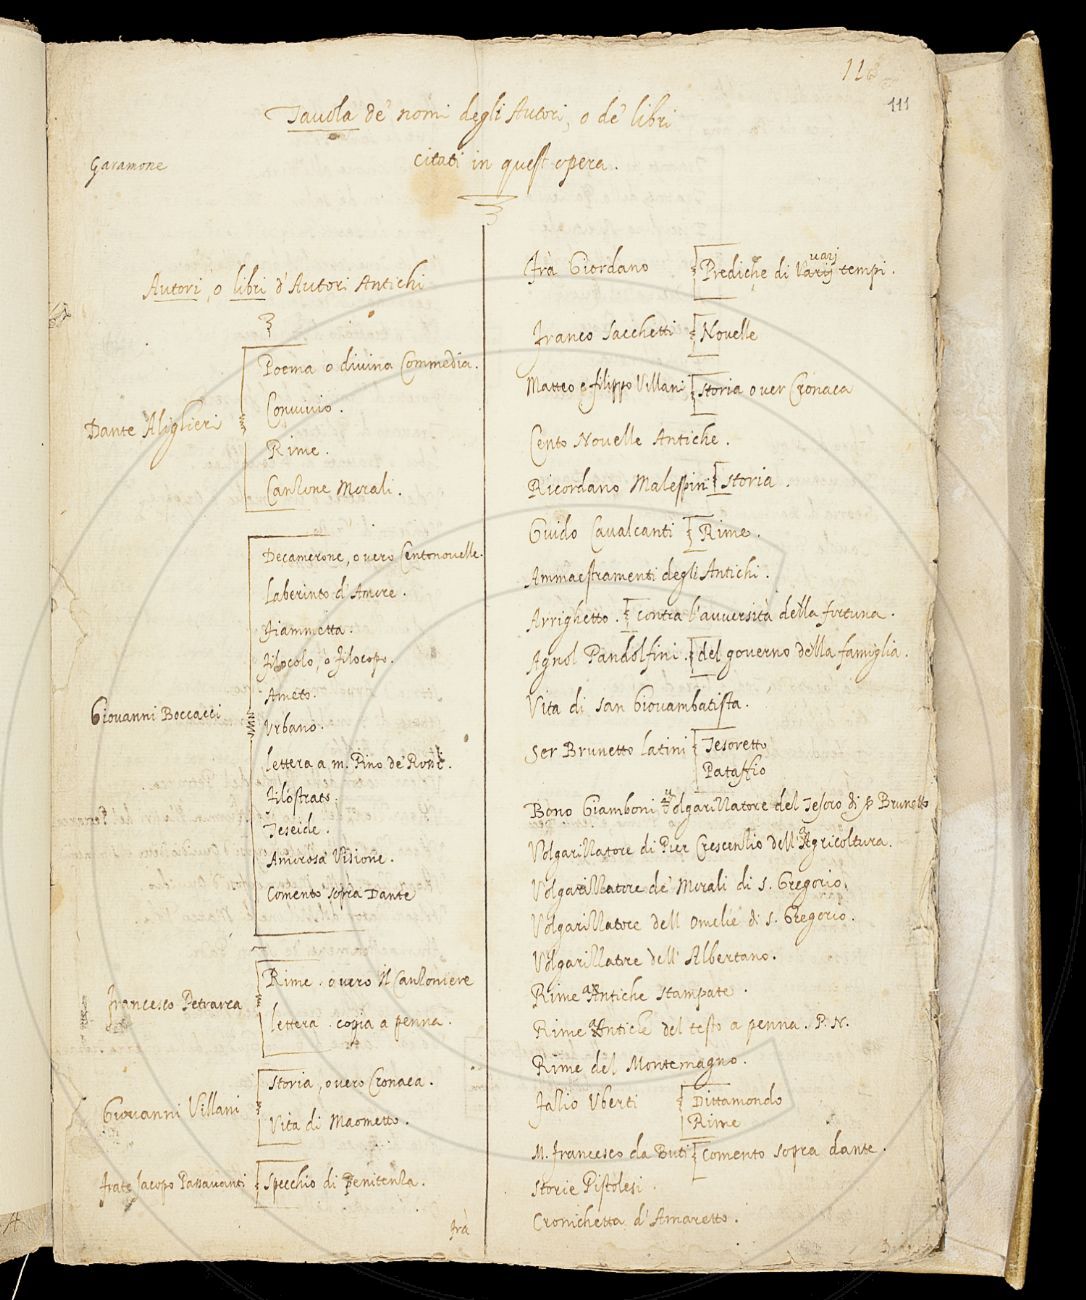 118
111
Tavola de' nomi degli Autori, o de' libri
citati in quest'opera.
Garamone
Autori, o libri d'Autori Antichi
Dante Alighieri
Poema o divina Commedia.
Convivio.
Rime.
Canzone Morali.
Giovanni Boccacci
Decamerone, o vero Centonovelle.
Laberinto d'Amore.
Fiammetta.
Filocolo, o Filocopo.
Ameto.
Urbano.
Lettera a m. Pino de' Rossi.
Filostrato.
Teseide.
Amorosa Visione.
Comento sopra Dante
Francesco Petrarca
Rime. o vero Il Canzoniere
Lettera. copia a penna.
Giovanni Villani
Storia, o vero Cronaca.
Vita di Maometto.
Frate Jacopo Passavanti
Specchio di Penitenza.
Frà
Frà Giordano
varj
Prediche di Varij tempi.
Franco Sacchetti
Novelle
Matteo e filippo Villani
Storia o ver Cronaca
Cento Novelle Antiche.
Ricordano Malespini
Storia.
Guido Cavalcanti
Rime.
Ammaestramenti degli Antichi.
Arrighetto.
contra l'avversità della fortuna.
Agnol Pandolfini.
del governo della famiglia.
Vita di San Giovambatista.
Ser Brunetto Latini
Tesoretto
Pataffio
Bono Giamboni Volgarizzatore del Tesoro di Sr Brunetto
Volgarizzatore di Pier Crescenzio dell'Agricoltura.
Volgarizzatore de' Morali di S. Gregorio.
Volgarizzatore dell Omelie di S. Gregorio.
Volgarizzatore dell'Albertano.
Rime Antiche Stampate.
Rime Antiche del testo a penna. P. N.
Rime del Montemagno.
Fazio Uberti
Dittamondo
Rime
M. Francesco da Buti
Comento sopra dante.
Storie Pistolesi.
Cronichetta d'Amaretto.